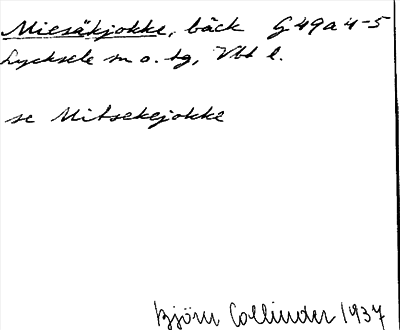 Miesäkjokke, bäck G 49 a 4-5
Lycksele sn o. tg, Vbt l.
se Mitsekejokke
Björn Collinder 1937